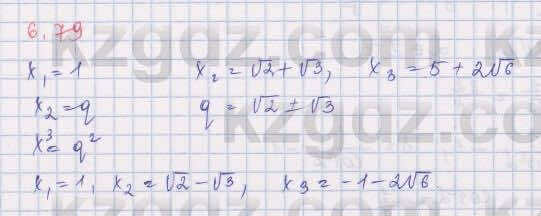 6.79
x₁ = 1 x₂ = √2 + √3, x₃ = 5 + 2√6
x₂ = q q = √2 ± √3
x³ = q²
x₁ = 1, x₂ = √2 - √3, x₃ = -1 - 2√6.
kzgdz.com